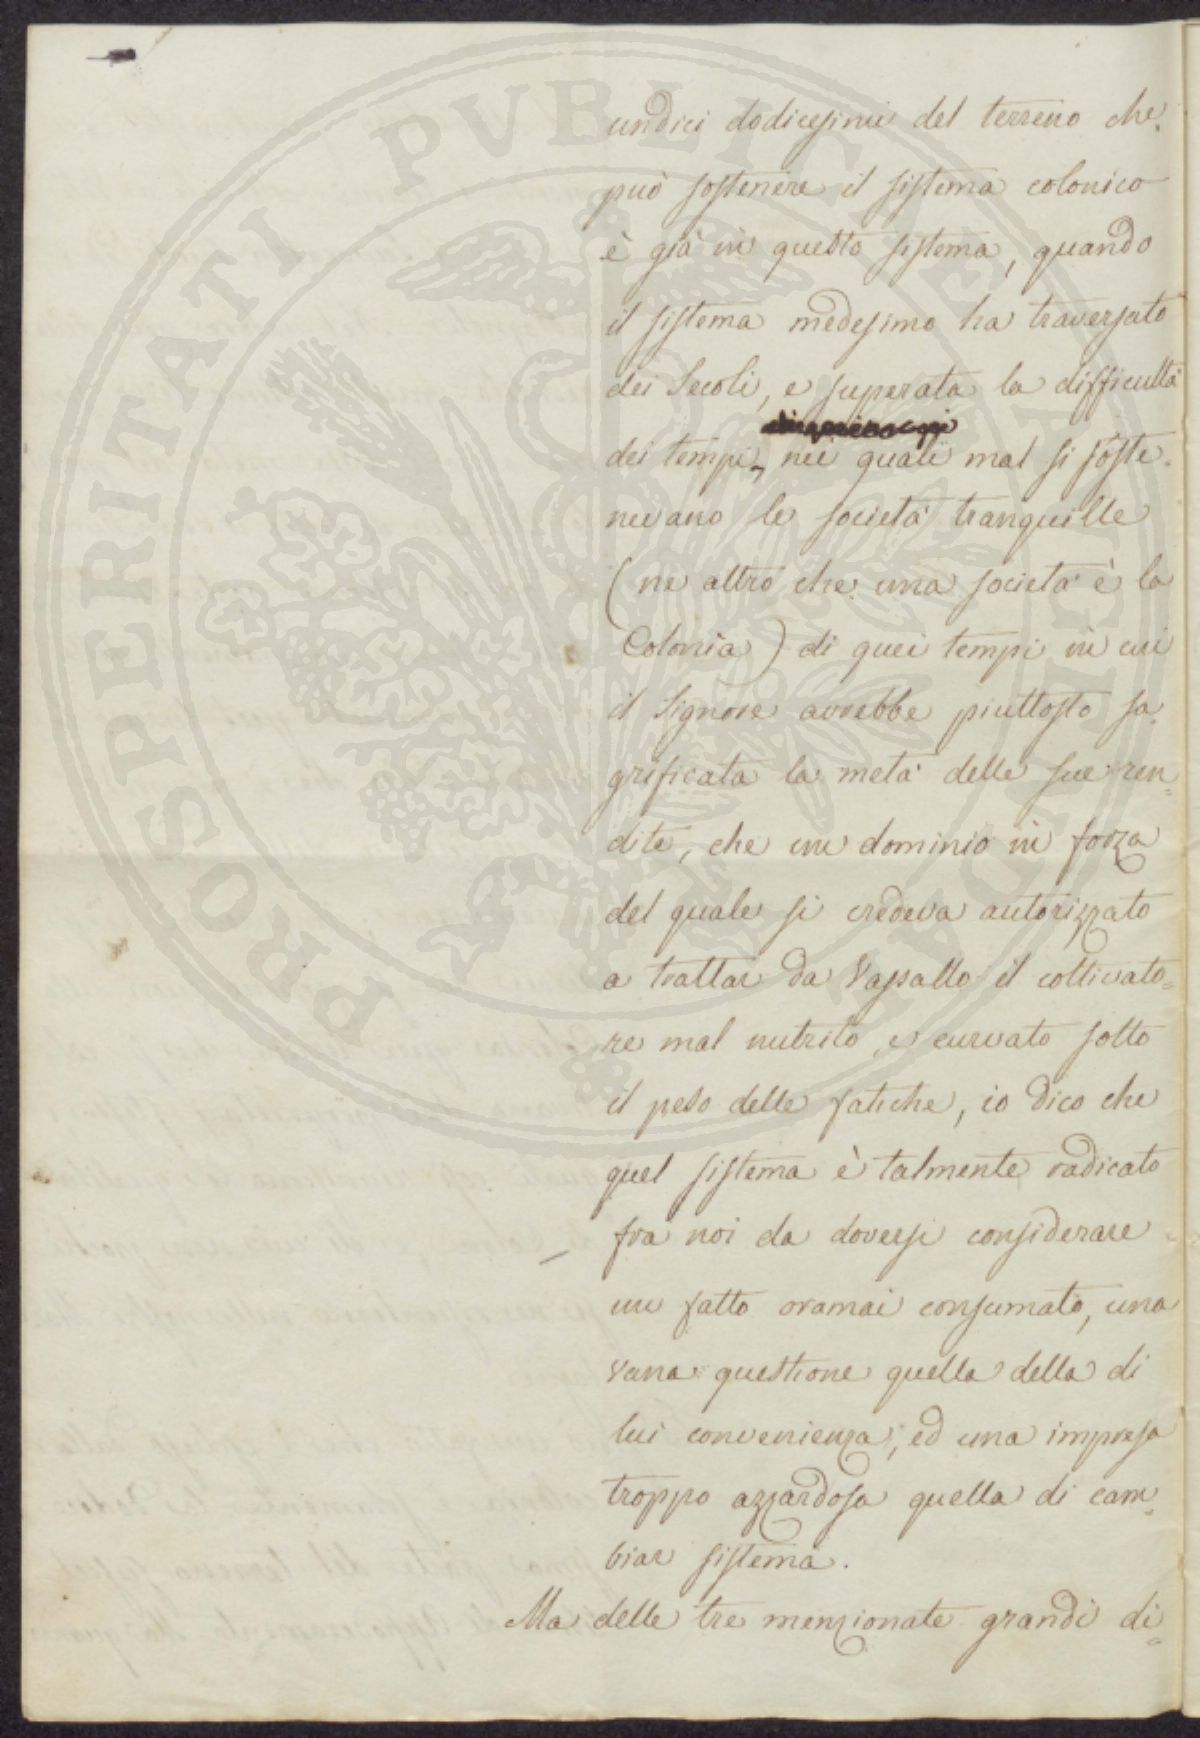 PROSPERITATI PUBLICAE AUGENDAE
undici dodicesimi del terreno che
può sostenere il sistema colonico
è già in questo sistema, quando
il sistema medesimo ha traversato
dei Secoli, e superata la difficultà
dei tempi, nei quali mal si soste-
nevano le società tranquille
(ne altro che una società è la
Colonìa) di quei tempi in cui
il Signore avrebbe piuttosto sa-
grificata la metà delle sue ren-
dite, che un dominio in forza
del quale si credeva autorizzato
a trattar da Vassallo il coltivato-
re mal nutrito, e curvato sotto
il peso delle fatiche, io dico che
quel sistema è talmente radicato
fra noi da doversi considerare
un fatto oramai consumato, una
vana questione quella della di
lui convenienza, ed una impresa
troppo azzardosa quella di cam-
biar sistema.
Ma delle tre menzionate grandi di-